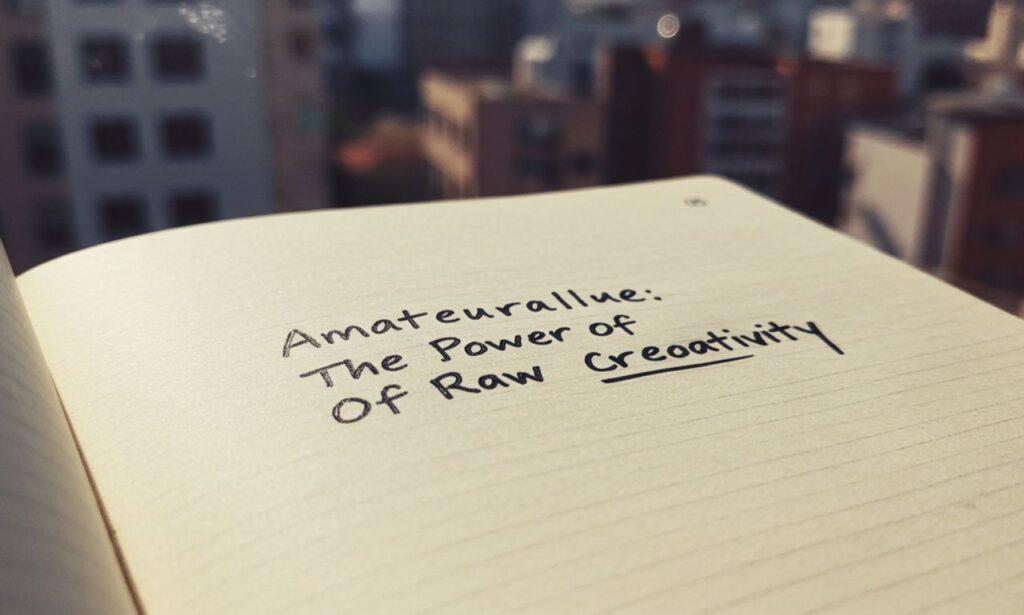 Amateurallue:
The Power of
Of Raw Creoativity